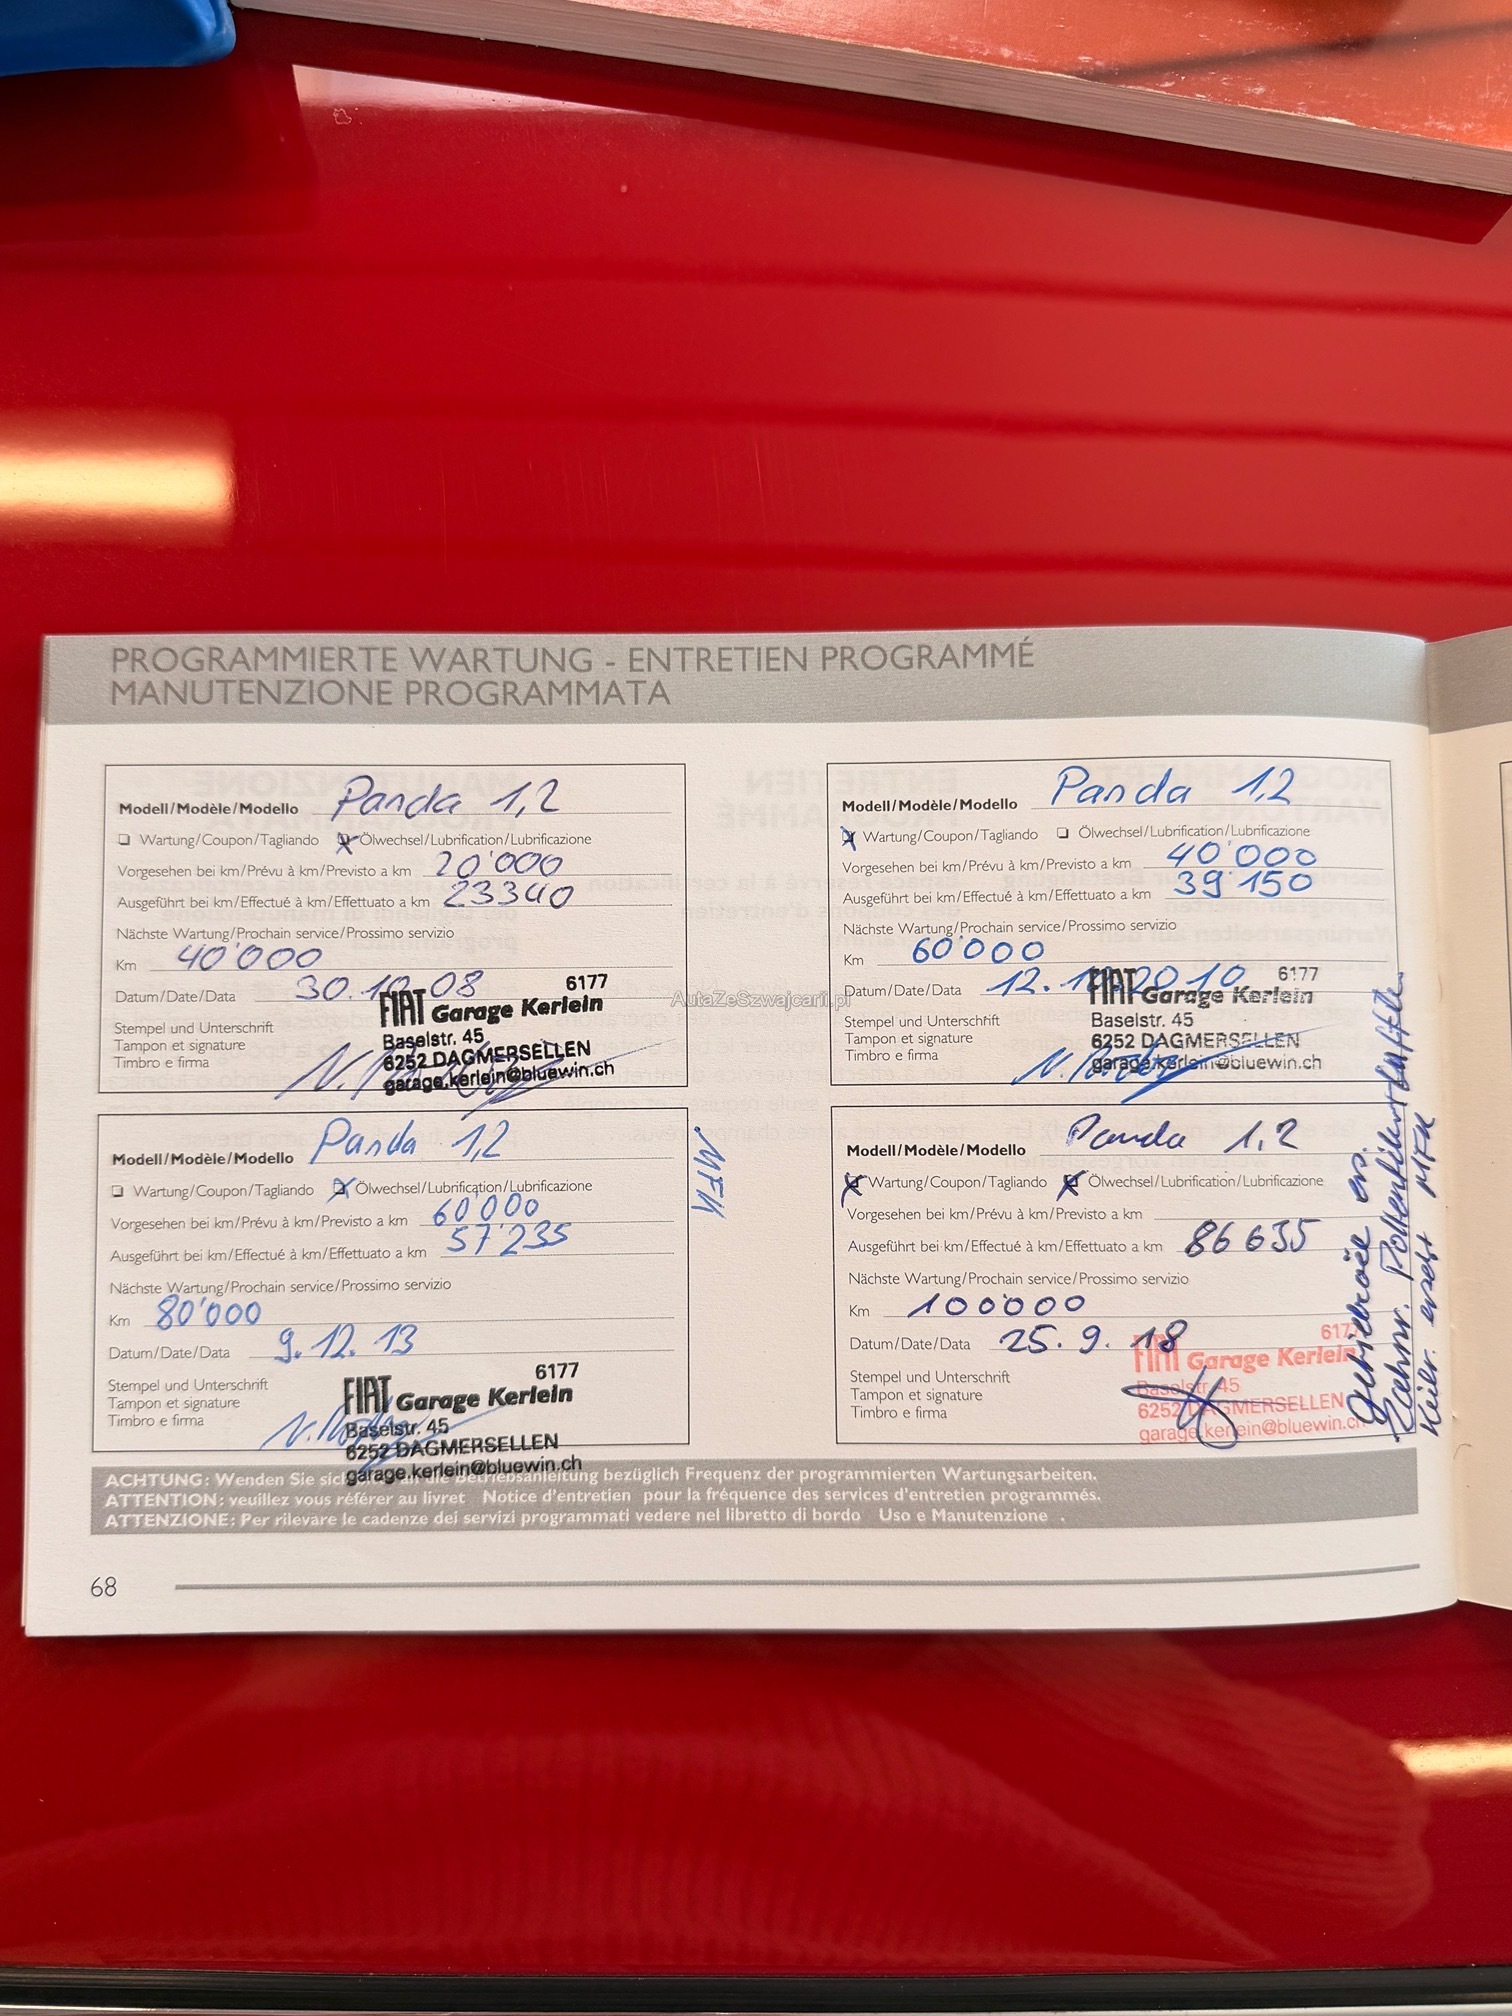 PROGRAMMIERTE WARTUNG - ENTRETIEN PROGRAMMÉ
MANUTENZIONE PROGRAMMATA
Modell/Modèle/Modello Panda 1,2
Wartung/Coupon/Tagliando Ölwechsel/Lubrification/Lubrificazione
Vorgesehen bei km/Prévu à km/Previsto a km 20'000
Ausgeführt bei km/Effectué à km/Effettuato a km 23340
Nächste Wartung/Prochain service/Prossimo servizio
Km 40'000
Datum/Date/Data 30.10.08
Stempel und Unterschrift
Tampon et signature
Timbro e firma
6177
FIAT Garage Kerlein
Baselstr. 45
6252 DAGMERSELLEN
garage.kerlein@bluewin.ch
Modell/Modèle/Modello Panda 1,2
Wartung/Coupon/Tagliando Ölwechsel/Lubrification/Lubrificazione
Vorgesehen bei km/Prévu à km/Previsto a km 40'000
Ausgeführt bei km/Effectué à km/Effettuato a km 39'150
Nächste Wartung/Prochain service/Prossimo servizio
Km 60'000
Datum/Date/Data 12. 2010
Stempel und Unterschrift
Tampon et signature
Timbro e firma
6177
FIAT Garage Kerlein
Baselstr. 45
6252 DAGMERSELLEN
garage.kerlein@bluewin.ch
AutaZeSzwajcarii.pl
Modell/Modèle/Modello Panda 1,2
Wartung/Coupon/Tagliando Ölwechsel/Lubrification/Lubrificazione
Vorgesehen bei km/Prévu à km/Previsto a km 60'000
Ausgeführt bei km/Effectué à km/Effettuato a km 57'235
Nächste Wartung/Prochain service/Prossimo servizio
Km 80'000
Datum/Date/Data 9.12.13
Stempel und Unterschrift
Tampon et signature
Timbro e firma
6177
FIAT Garage Kerlein
Baselstr. 45
6252 DAGMERSELLEN
garage.kerlein@bluewin.ch
MFK
Modell/Modèle/Modello Panda 1,2
Wartung/Coupon/Tagliando Ölwechsel/Lubrification/Lubrificazione
Vorgesehen bei km/Prévu à km/Previsto a km
Ausgeführt bei km/Effectué à km/Effettuato a km 86635
Nächste Wartung/Prochain service/Prossimo servizio
Km 100'000
Datum/Date/Data 25.9.18
Stempel und Unterschrift
Tampon et signature
Timbro e firma
617
FIAT Garage Kerlein
Baselstr. 45
6252 DAGMERSELLEN
garage.kerlein@bluewin.ch
Getriebeöl ers.
Zahnr. Pollenfilter+Luftfilter
Keilr. ersetzt MFK
ACHTUNG: Wenden Sie sich an die Betriebsanleitung bezüglich Frequenz der programmierten Wartungsarbeiten.
ATTENTION: veuillez vous référer au livret Notice d'entretien pour la fréquence des services d'entretien programmés.
ATTENZIONE: Per rilevare le cadenze dei servizi programmati vedere nel libretto di bordo Uso e Manutenzione .
68